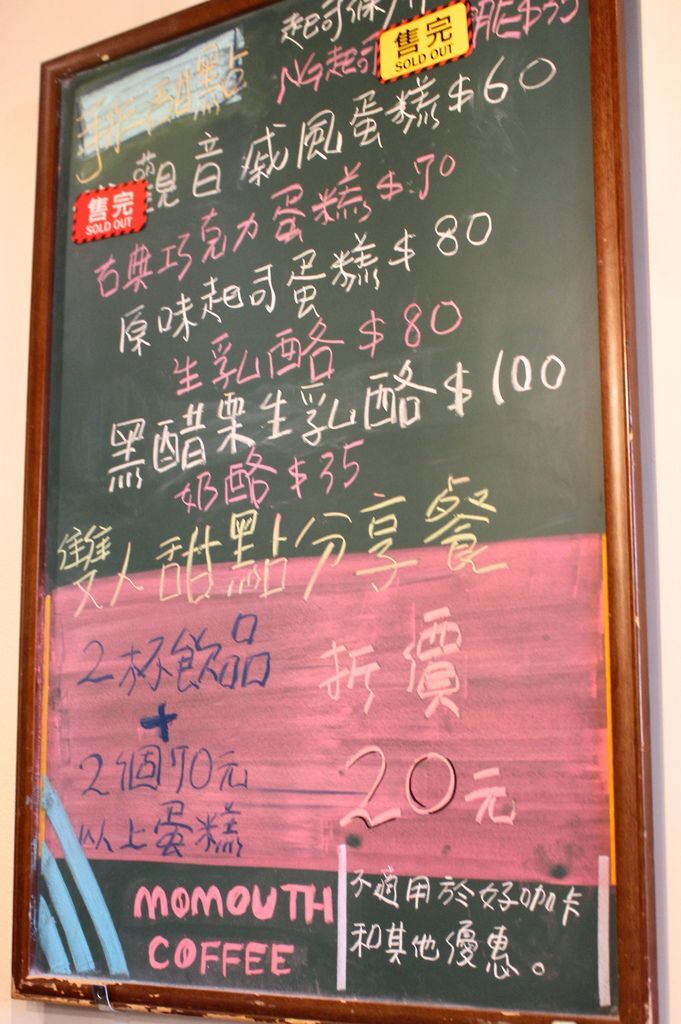 起司條
手作甜點
NG起司
售完
SOLD OUT
$35
觀音戚風蛋糕$60
售完
SOLD OUT
古典巧克力蛋糕$70
原味起司蛋糕$80
生乳酪$80
黑醋栗生乳酪$100
奶酪$35
雙人甜點分享餐
2杯飲品
+
2個70元
以上蛋糕
折價
20元
MOMOUTH
COFFEE
不適用於好咖卡
和其他優惠。